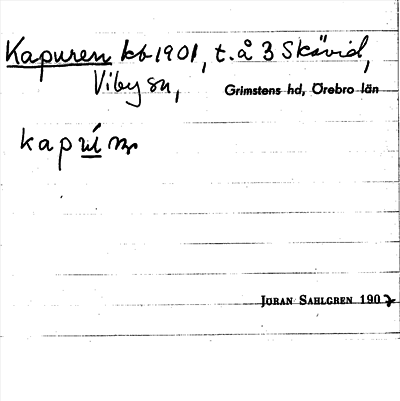 Kapuren kb 1901, t. å 3 Skävid,
Viby sn,
Grimstens hd, Örebro län
Jöran Sahlgren 1907